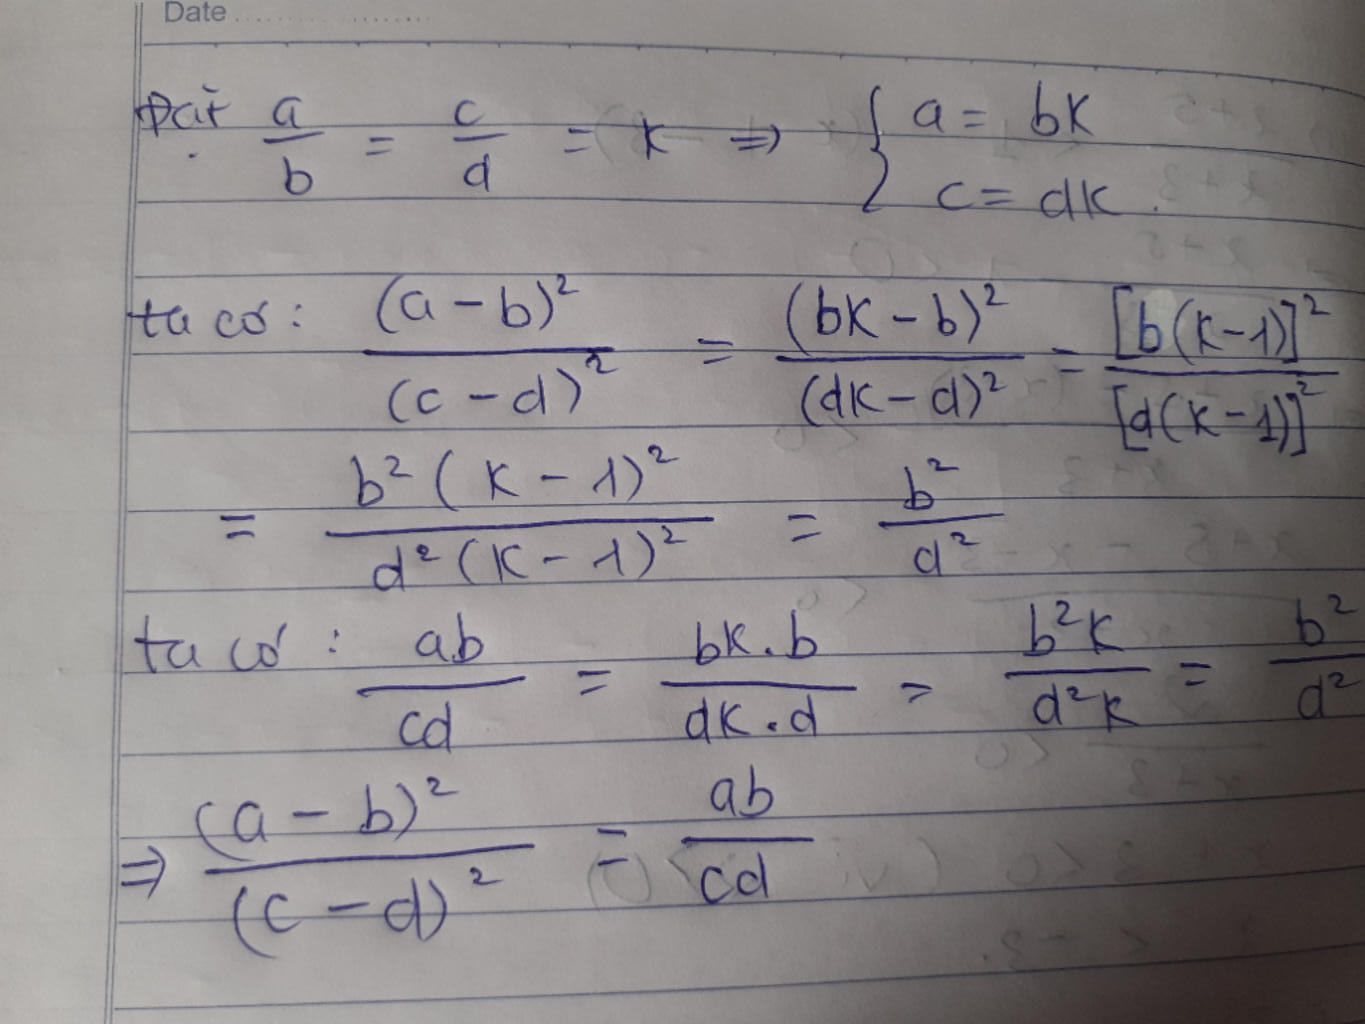 Date
Đặt a/b = c/d = k => { a = bk
c = dk.
ta có: (a - b)²/(c - d)² = (bk - b)²/(dk - d)² = [b(k-1)]²/[d(k-1)]²
= b²(k - 1)²/d²(k - 1)² = b²/d²
ta có: ab/cd = bk.b/dk.d = b²k/d²k = b²/d²
=> (a - b)²/(c - d)² = ab/cd